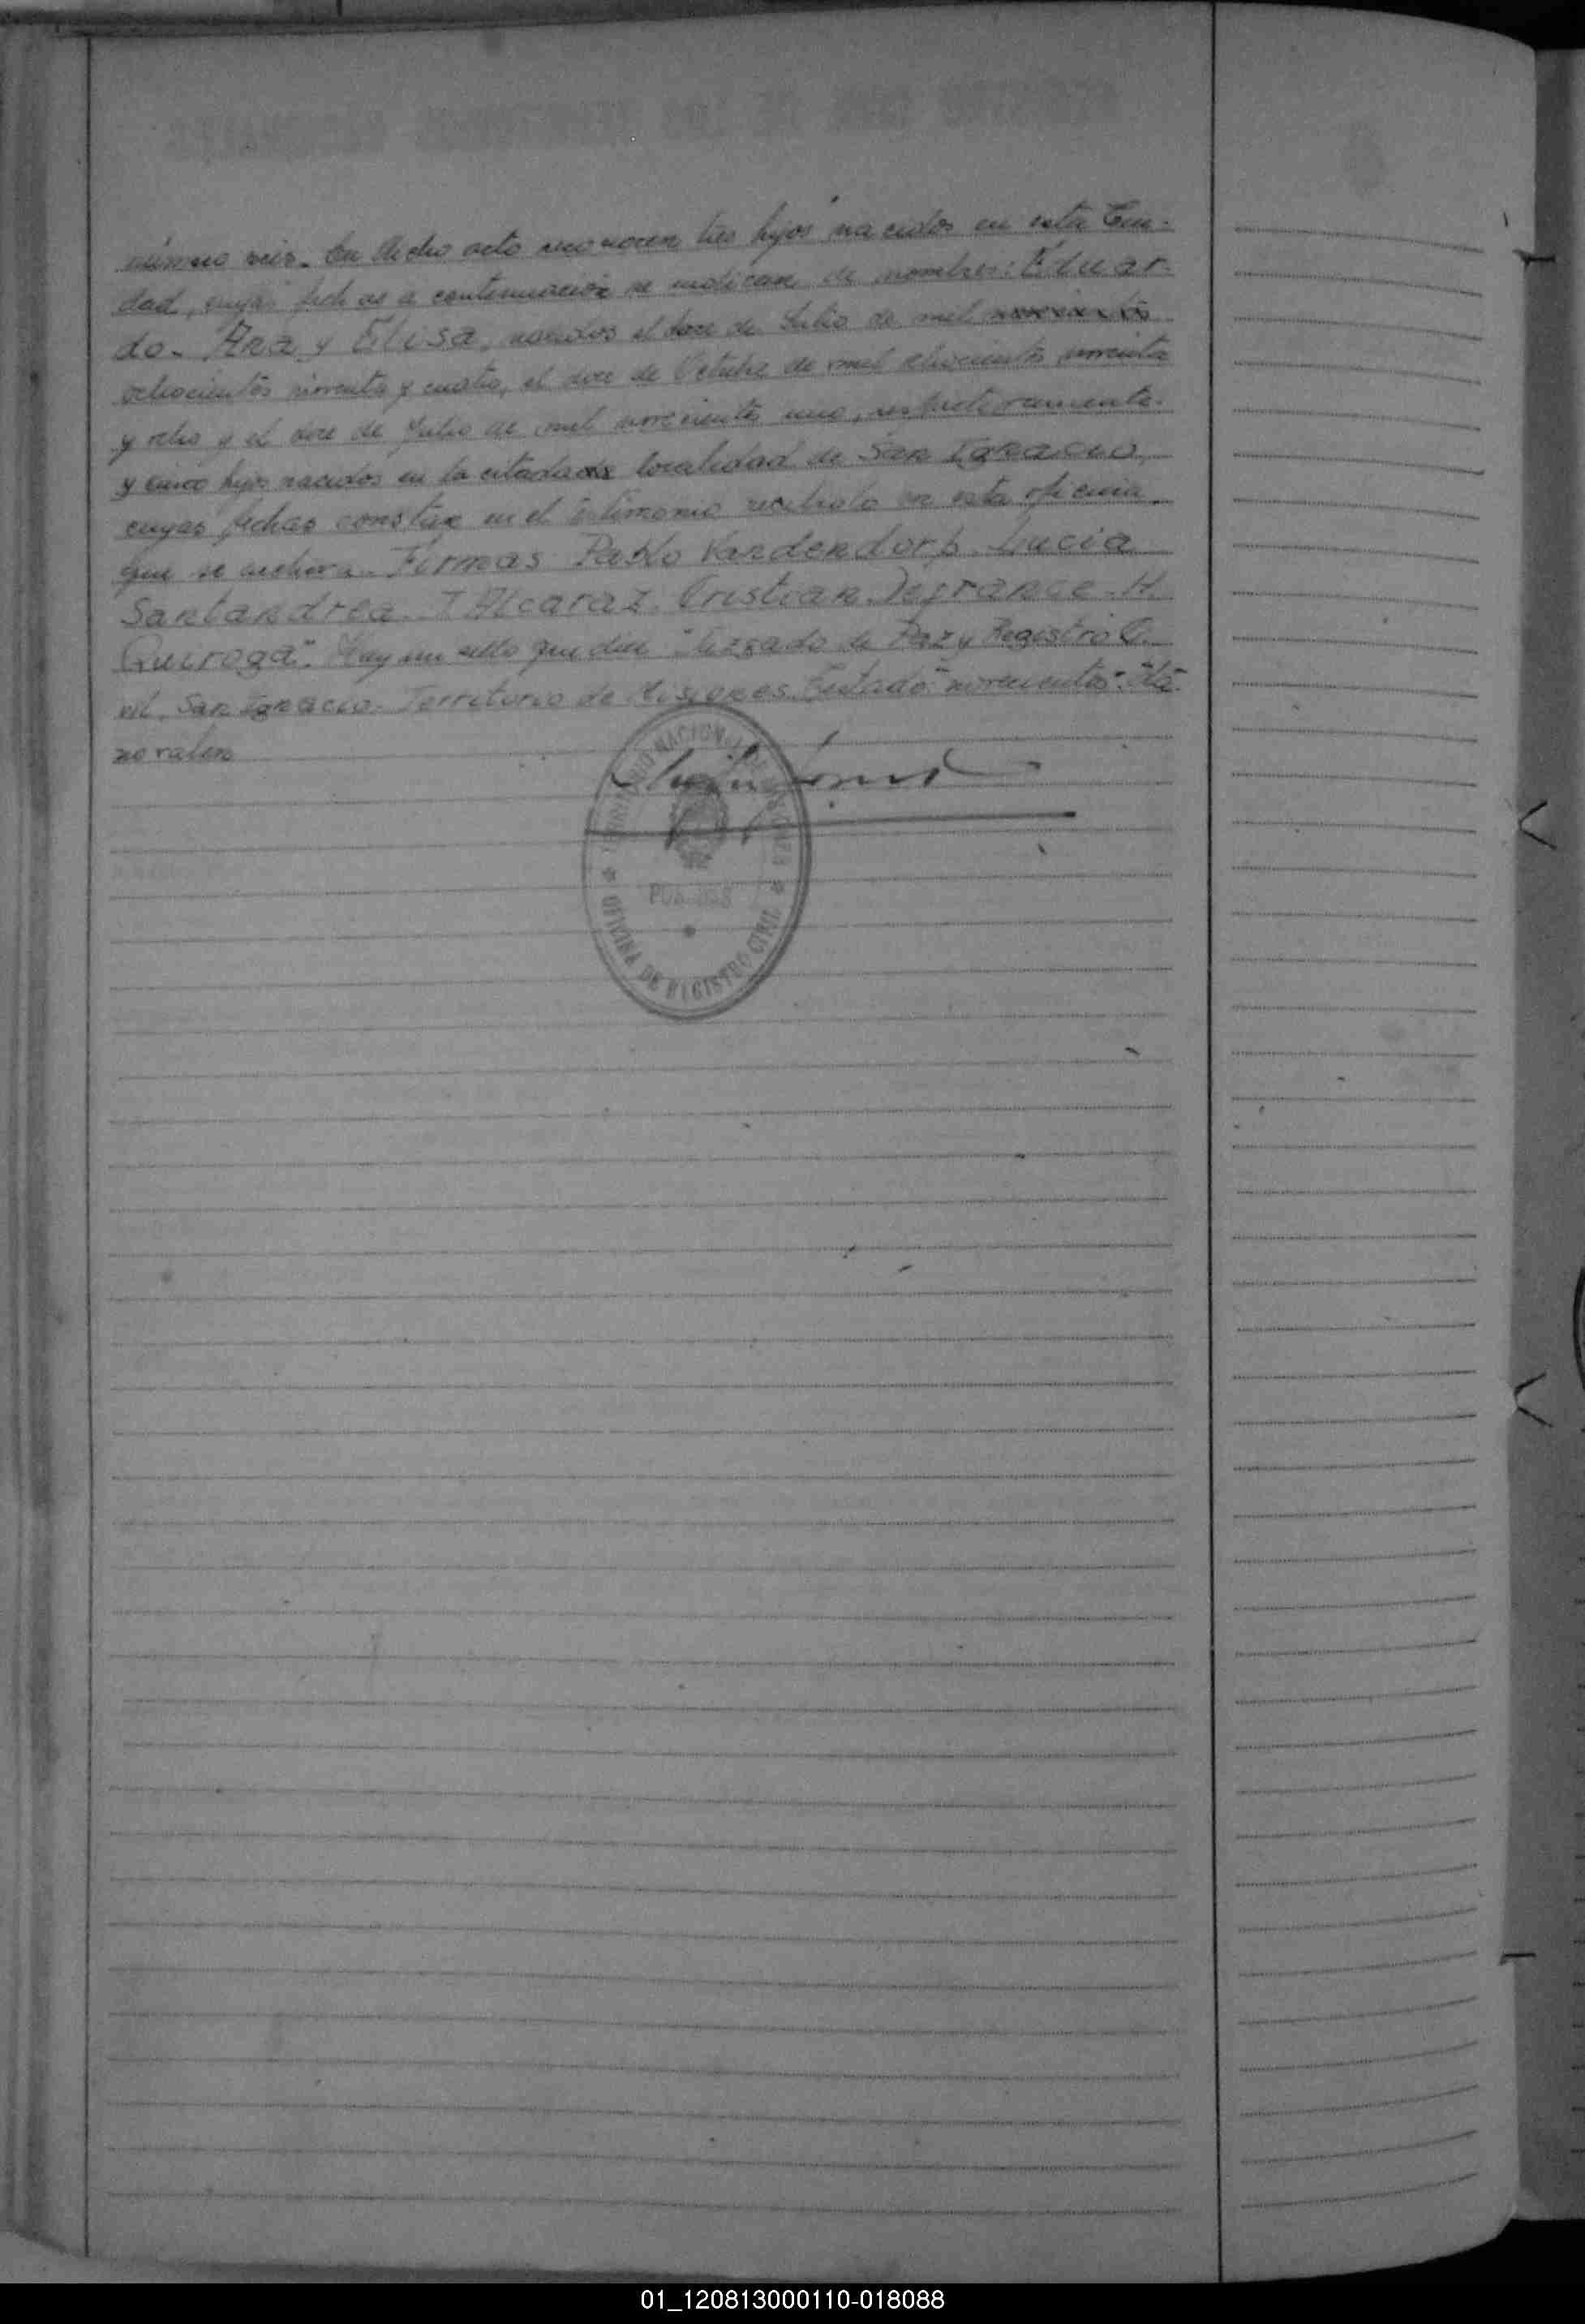 número seis. En dicho acto reconocen tres hijos nacidos en esta Ciu-
dad, cuyas fechas a continuación se indican, de nombres: Eduar-
do. Ana y Elisa, nacidos el doce de Julio de mil novecientos
ochocientos noventa y cuatro, el doce de Octubre de mil ochocientos noventa
y ocho y el doce de Julio de mil novecientos uno, respectivamente.
y cinco hijos nacidos en la citada localidad de San Ignacio,
cuyas fechas constan en el testimonio recibido en esta oficina
que se archiva. Firmas Pablo Vandendorp. Lucia
Santandrea. T Alcaraz. Cristian Defrance. H.
Quiroga". Hay un sello que dice "Juzgado de Paz y Registro C.
vil. San Ignacio. Territorio de Misiones. Testado "novecientos"
no valen
TERRITORIO NACIONAL DE MISIONES
POSADAS
OFICINA DE REGISTRO CIVIL
01_120813000110-018088